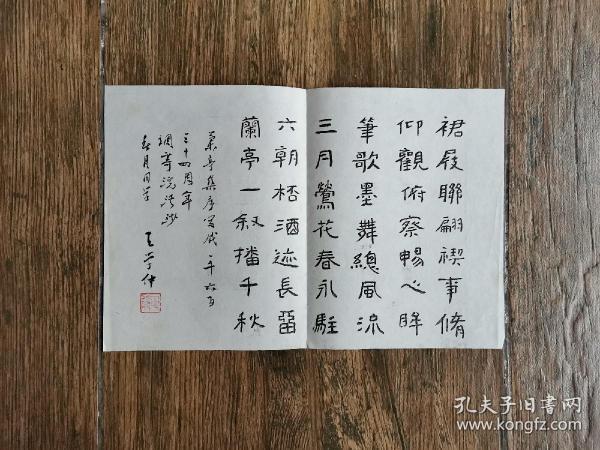 裙屐聯翩禊事脩
仰觀俯察暢心眸
筆歌墨舞總風流
三月鶯花春永駐
六朝栝酒迹長留
蘭亭一敘播千秋
蘭亭集序寫成一千六百
三十四周年
調寄浣溪沙
春月同学
王学仲
孔夫子旧书网
www.kongfz.com